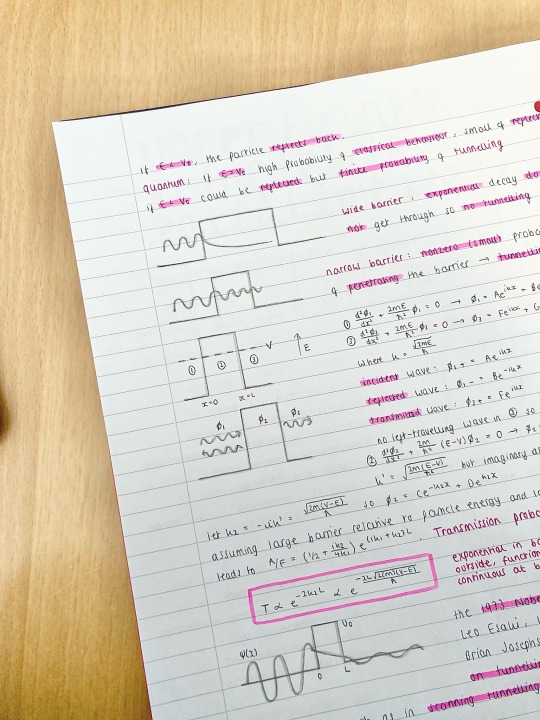 if E < V₀, the particle reflects back.
quantum: if E > V₀ high probability of classical behaviour, small of
if E < V₀ could be reflected but finite probability of tunnelling
wide barrier: exponential decay
not get through so no tunnelling
narrow barrier: nonzero (small)
of penetrating the barrier → tunnelling
① d²φ₁/dx² + 2mE/ħ² φ₁ = 0 → φ₁ = Ae^ikx +
③ + 2mE/ħ² = 0 → φ₃ = Fe^ikx +
where k = √2mE/ħ
① ② ③ V E
x=0 x=L
incident wave: φ₁₊ = Ae^ikx
reflected wave: φ₁₋ = Be^-ikx
transmitted wave: φ₃₊ = Fe^ikx
φ₁ φ₂ φ₃
no left-travelling wave in ③ so
② d²φ₂/dx² + 2m/ħ² (E-V)φ₂ = 0 → φ₂ =
k' = √2m(E-V)/ħ but imaginary as
let k₂ = -ik' = √2m(V-E)/ħ so φ₂ = Ce^-k₂x + De^k₂x
assuming large barrier relative to particle energy and
leads to A/F = (1/2 + ik₂/4k₁) e^(ik₁+k₂)L. Transmission
T ∝ e^-2k₂L ∝ e^-2L√2m(V-E)/ħ
exponential in
outside,
continuous at
ψ(x) U₀
0 L
the 1973
Leo Esaki,
Brian
on tunnelling
as in scanning tunnelling